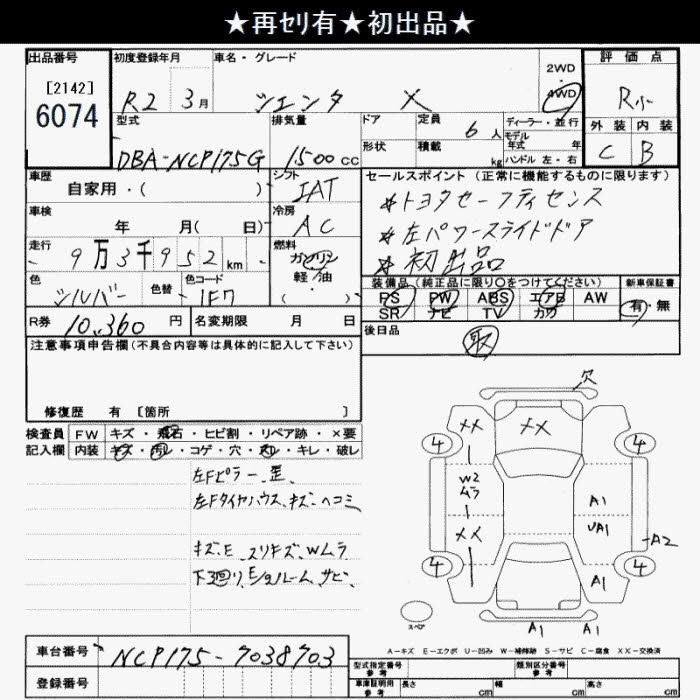 ★再ｾﾘ有★初出品★
出品番号 初度登録年月 車名・グレード 2WD・4WD 評価点
[2142]
6074
R2 3月 シエンタ X R小
型式 排気量 ドア 定員 6人 ディーラー・並行 外装 内装
DBA-NCP175G 1500cc 形状 積載 kg モデル年式 年 C B
ハンドル 左・右
車歴 シフト セールスポイント (正常に機能するものに限ります)
自家用・( ) IAT
*トヨタセーフティセンス
車検 冷房
年 月( 日) AC
*左パワースライドドア
走行 燃料
9万3千952km ガソリン 軽油
*初出品
色 色替 色コード
シルバー 1F7
装備品 (純正品に限り○をつけてください) 新車保証書
PS PW ABS エアB AW 有・無
SR ナビ TV カワ
R券 10,360円 名変期限 月 日
後日品 取
注意事項申告欄 (不具合内容等は具体的に記入して下さい)
修復歴 有 [箇所 ]
検査員 FW キズ・飛石・ヒビ割・リペア跡・×要
記入欄 内装 キズ・汚レ・コゲ・穴・ハレ・キレ・破レ
左Fピラー歪
左Fタイヤハウス、キズ・ヘコミ
キズ、E、スリキズ、Wムラ
下廻リ、Eンジルーム、サビ
欠
XX XX
4 4
W2
ムラ
A1
UA1
XX
A2
4 A1 4
スペア A1 A1
A－キズ E－エクボ U－凹み W－補修跡 S－サビ C－腐食 XX－交換済
車台番号 NCP175-7038703
登録番号
型式指定番号 参考 類別区分番号 参考
車庫証明用 参考 長さ cm 幅 cm 高さ cm